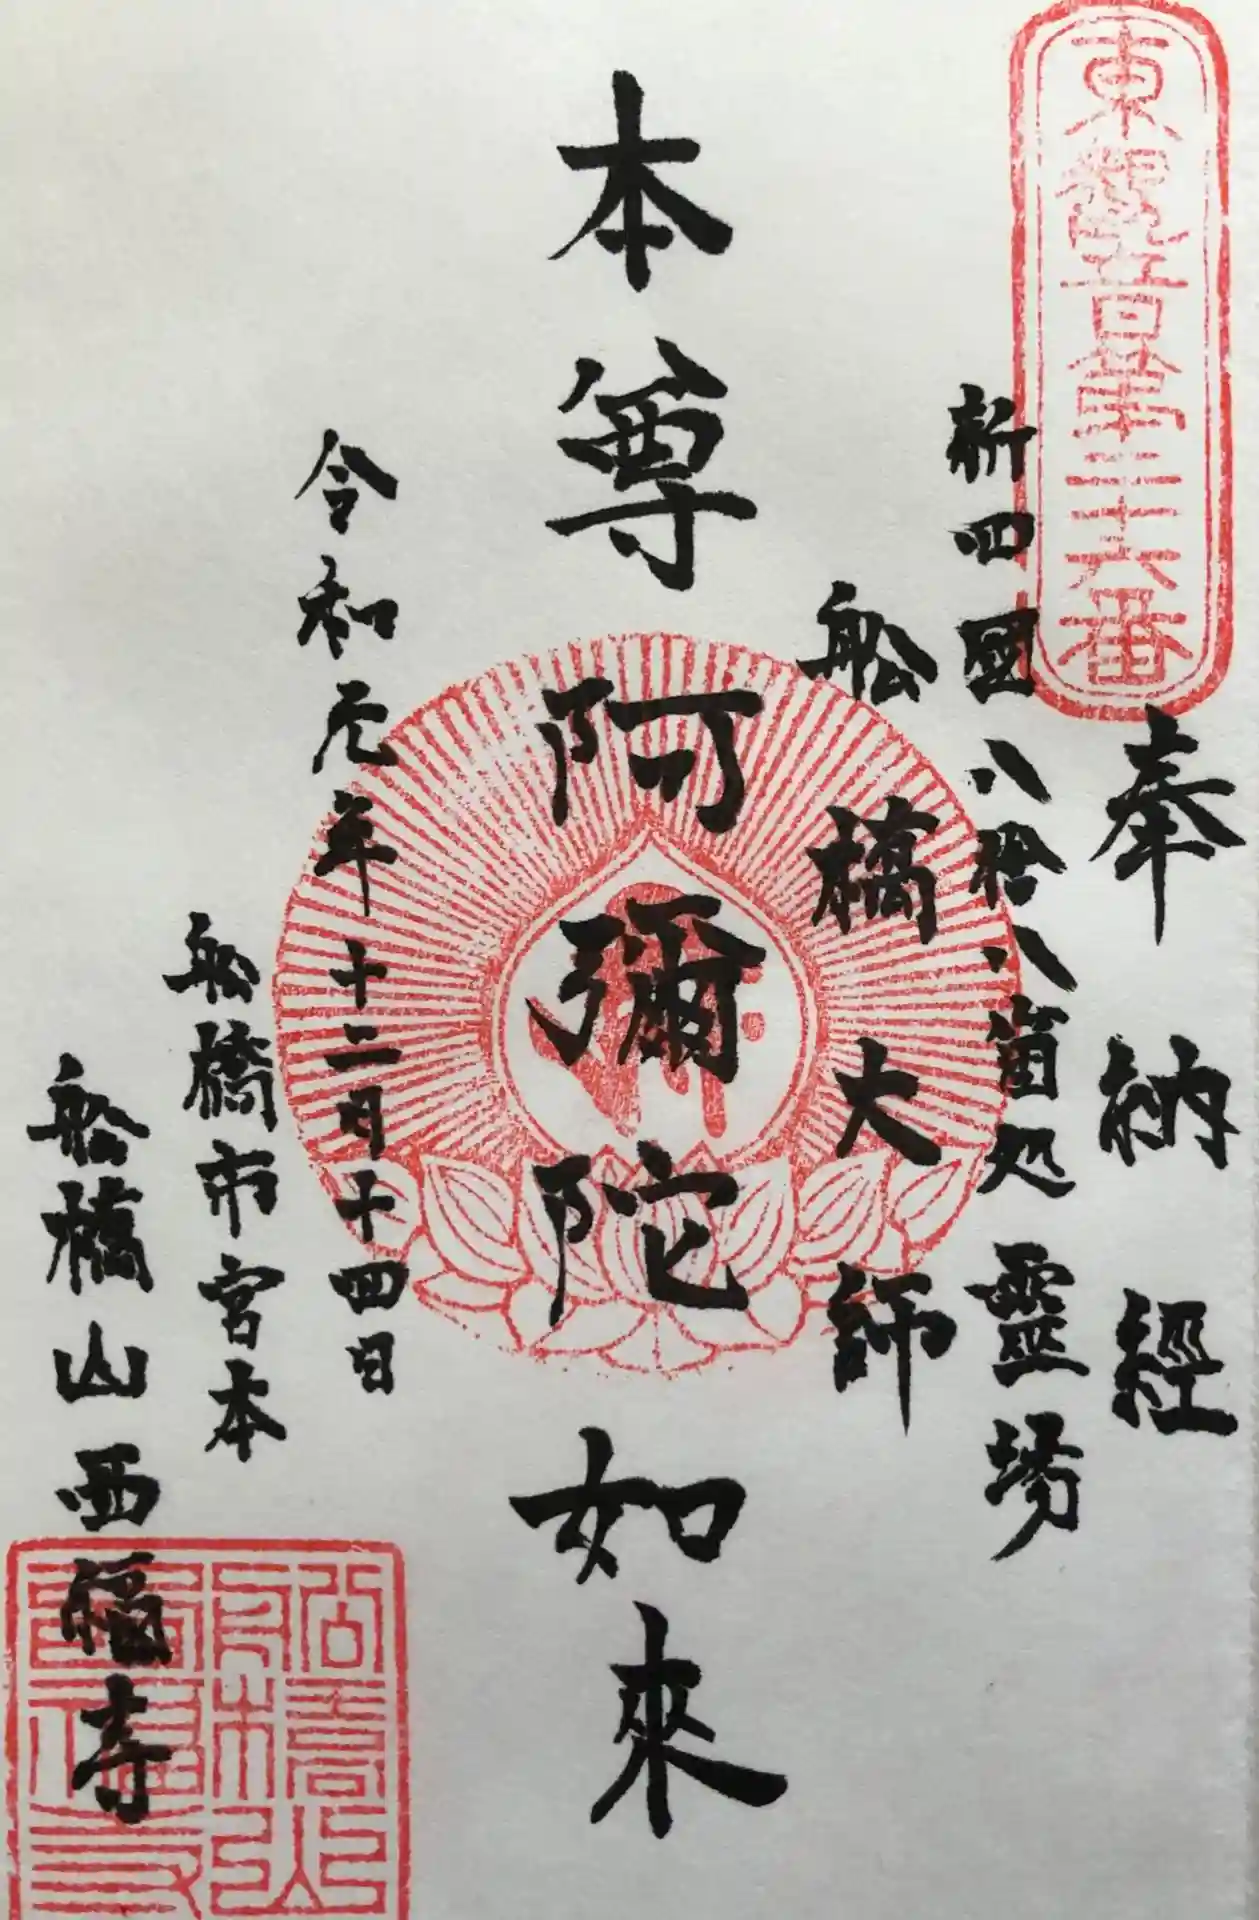 東觀音第三十六番
奉納經
新四國八拾八箇処靈場
船橋大師
本尊阿彌陀如來
令和元年十二月十四日
船橋市宮本
船橋山西福寺